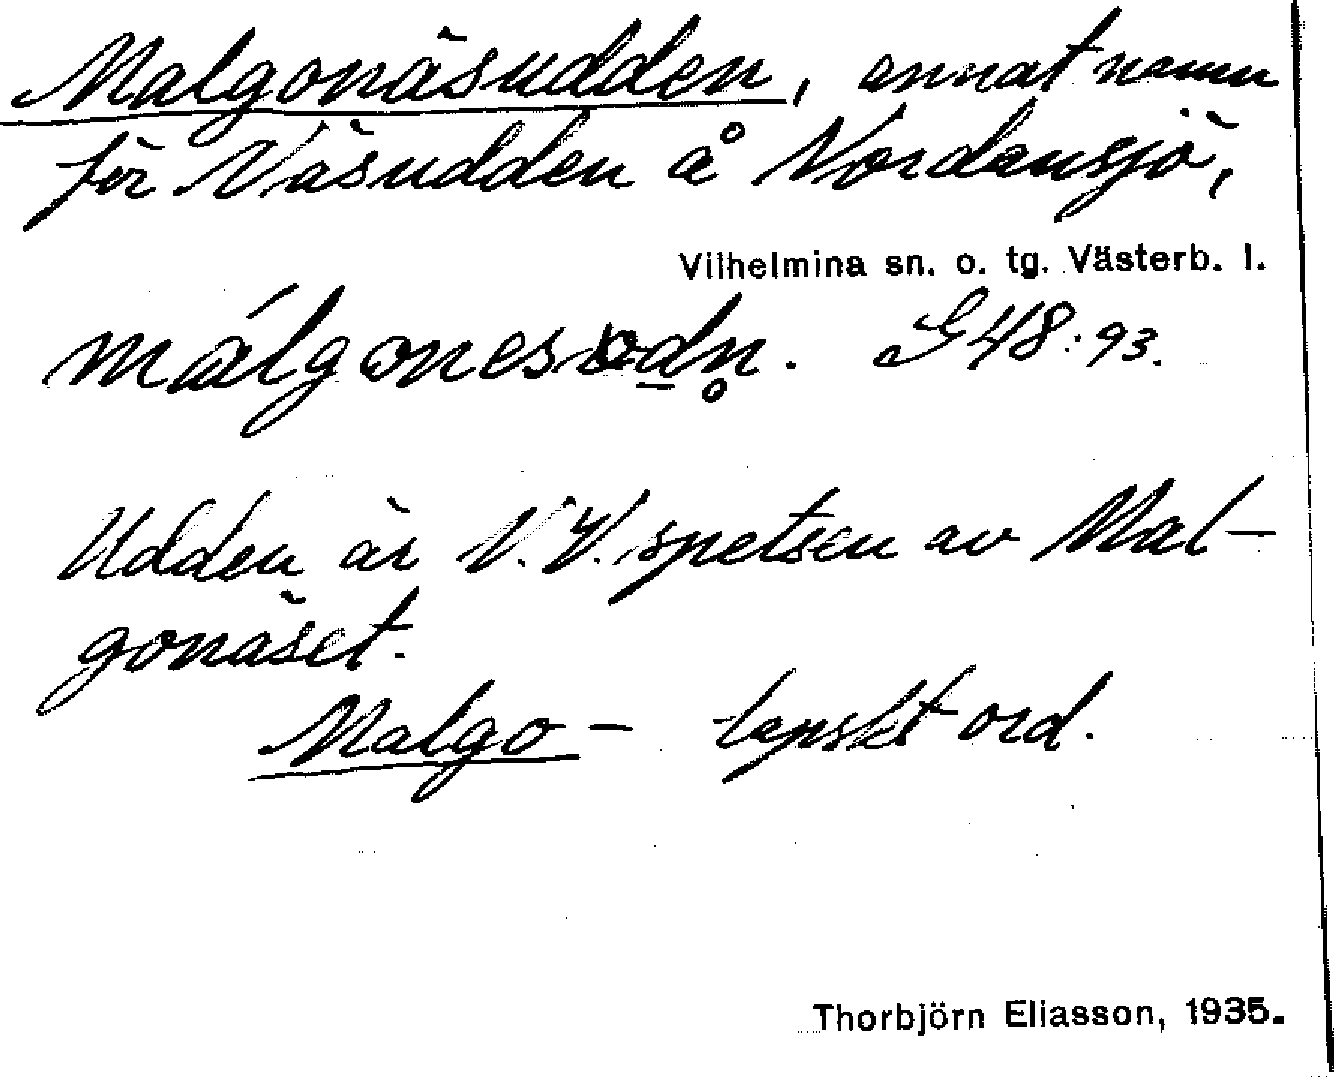 Malgonäsudden, annat namn
för Näsudden å Nordansjö,
Vilhelmina sn. o. tg. Västerb. l.
málgonesodn̥. G48:93.
Udden är N.V. spetsen av Mal-
gonäset.
Malgo- lapskt ord.
Thorbjörn Eliasson, 1935.